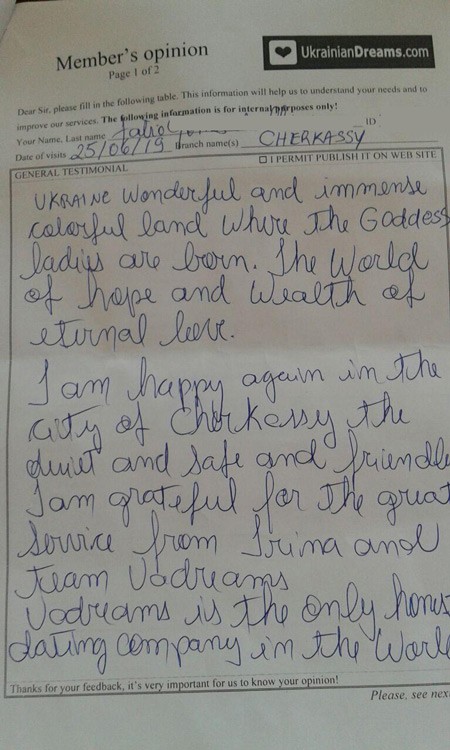 UkrainianDreams.com
Member's opinion
Page 1 of 2
Dear Sir, please fill in the following table. This information will help us to understand your needs and to
improve our services. The following information is for internal purposes only!
Your Name, Last name ID
Date of visits 25/06/19 Branch name(s) CHERKASSY
GENERAL TESTIMONIAL I PERMIT PUBLISH IT ON WEB SITE
UKRAINE wonderful and immense
colorful land where the Goddess
ladies are born. The World
of hope and wealth of
eternal love.
I am happy again in the
city of Cherkassy the
quiet and safe and friendly
I am grateful for the great
service from Irina and
team Uadreams
Uadreams is the only hones
dating company in the Worl
Thanks for your feedback, it's very important for us to know your opinion!
Please, see nex